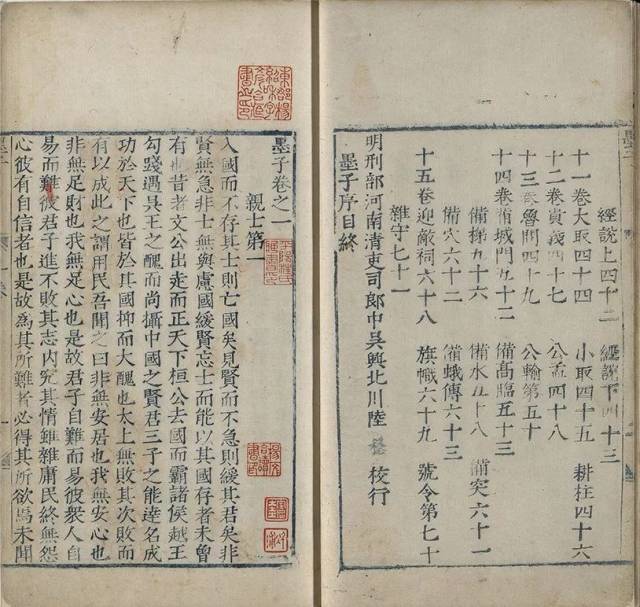 經說上四十二　經說下四十三
十一卷大取四十四　小取四十五　耕柱四十六
十二卷貴義四十七　公孟四十八
十三卷魯問四十九　公輸第五十
十四卷備城門五十二　備高臨五十三
備梯五十六　備水五十八　備突六十一
備穴六十二　備蛾傳六十三
十五卷迎敵祠六十八　旗幟六十九　號令第七十
雜守七十一
明刑部河南清吏司郎中吳興北川陸　校行
墨子序目終
墨子卷之一
親士第一
入國而不存其士則亡國矣見賢而不急則緩其君矣非
賢無急非士無與慮國緩賢忘士而能以其國存者未曾
有也昔者文公出走而正天下桓公去國而霸諸侯越王
勾踐遇吳王之醜而尚攝中國之賢君三子之能達名成
功於天下也皆於其國抑而大醜也太上無敗其次敗而
有以成此之謂用民吾聞之曰非無安居也我無安心也
非無足財也我無足心也是故君子自難而易彼衆人自
易而難彼君子進不敗其志內究其情雖雜庸民終無怨
心彼有自信者也是故爲其所難者必得其所欲焉未聞